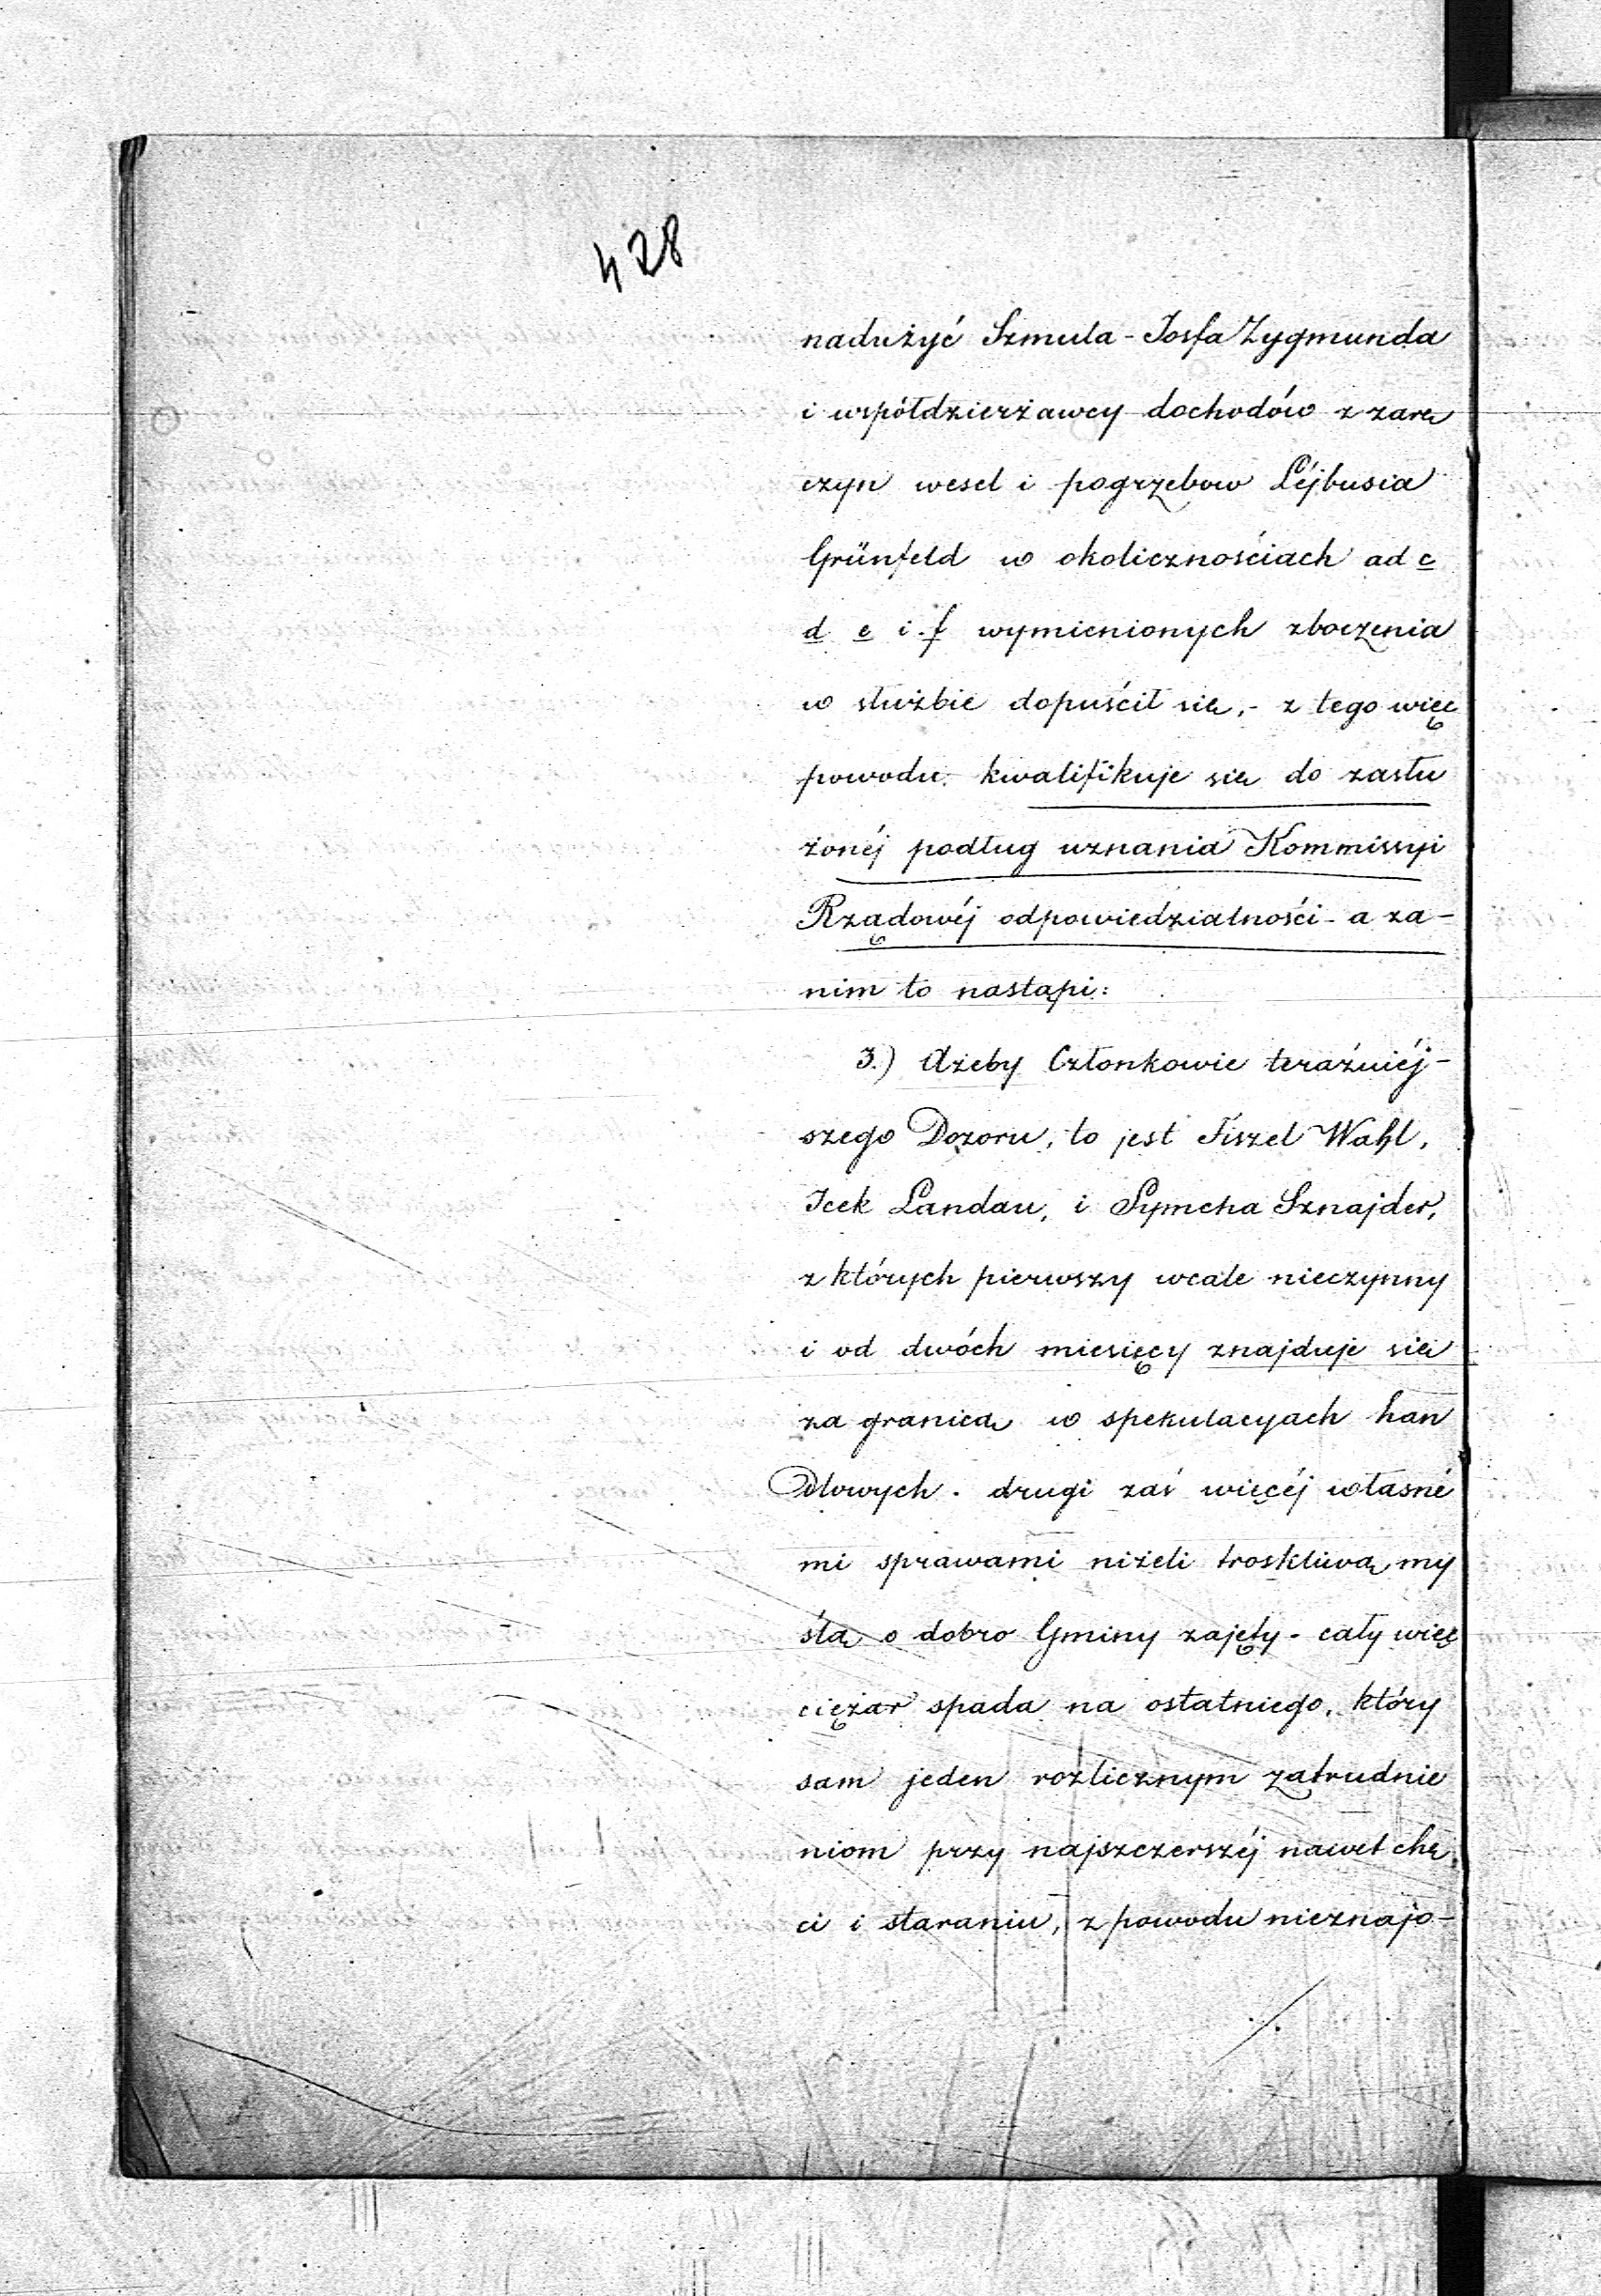 428
nadużyć Szmula - Josfa Zygmunda
i współdzierżawcy dochodów z zarę
czyn wesel i pogrzebow Léjbusia
Grünfeld w okolicznościach ad c
d e i f wymienionych zboczenia
w służbie dopuścił się, - z tego więc
powodu kwalifikuje się do zasłu
żonéj podług uznania Kommissyi
Rządowéj odpowiedzialności - a za-
nim to nastąpi:
3.) Ażeby Członkowie teraźniéj-
szego Dozoru, to jest Fiszel Wahl,
Icek Landau, i Symcha Sznajder,
z których pierwszy wcale nieczynny
i od dwóch miesięcy znajduje się
za granicą w spekulacyach han
dlowych. drugi zaś więcéj własné
mi sprawami niżeli troskliwą my
ślą o dobro Gminy zajęty - cały więc
ciężar spada na ostatniego, który
sam jeden rozlicznym zatrudnie
niom przy najszczerszéj nawet chę
ci i staraniu, z powodu nieznajo-